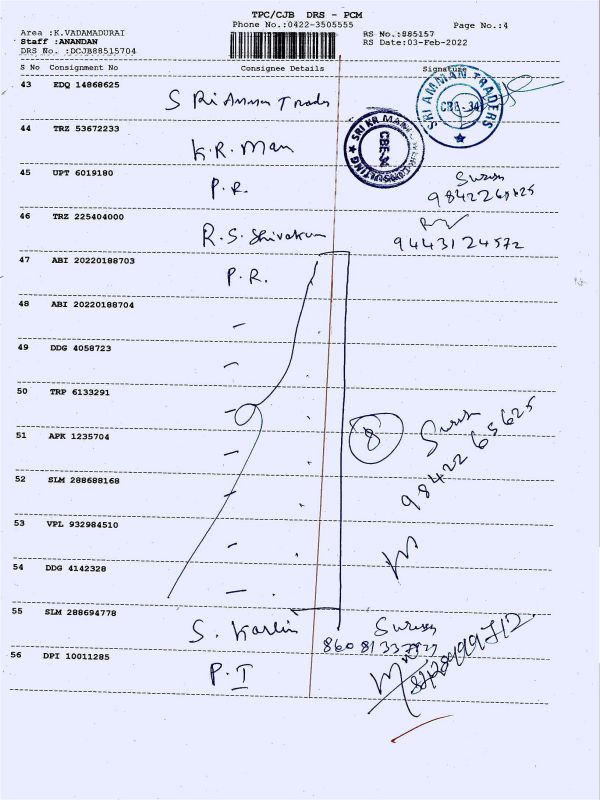 TPC/CJB DRS - PCM
Area :K.VADAMADURAI
Phone No.:0422-3505555
Page No.:4
Staff :ANANDAN
RS No.:885157
DRS No. :DCJB88515704
RS Date:03-Feb-2022
S No Consignment No Consignee Details Signature
43 EDQ 14868625
S Ri Amman Traders
SRI AMMAN TRADERS
CBE-34
44 TRZ 53672233
K.R. Man
SRI KR MANI
CBE-34
45 UPT 6019180
P.R.
Suresh
9842265625
46 TRZ 225404000
R.S. Shivakum
9443124572
47 ABI 20220188703
P.R.
48 ABI 20220188704
49 DDG 4058723
50 TRP 6133291
51 APK 1235704
8
Suresh
9842265625
52 SLM 288688168
53 VPL 932984510
54 DDG 4142328
55 SLM 288694778
S.
Suresh
56 DPI 10011285
P. I